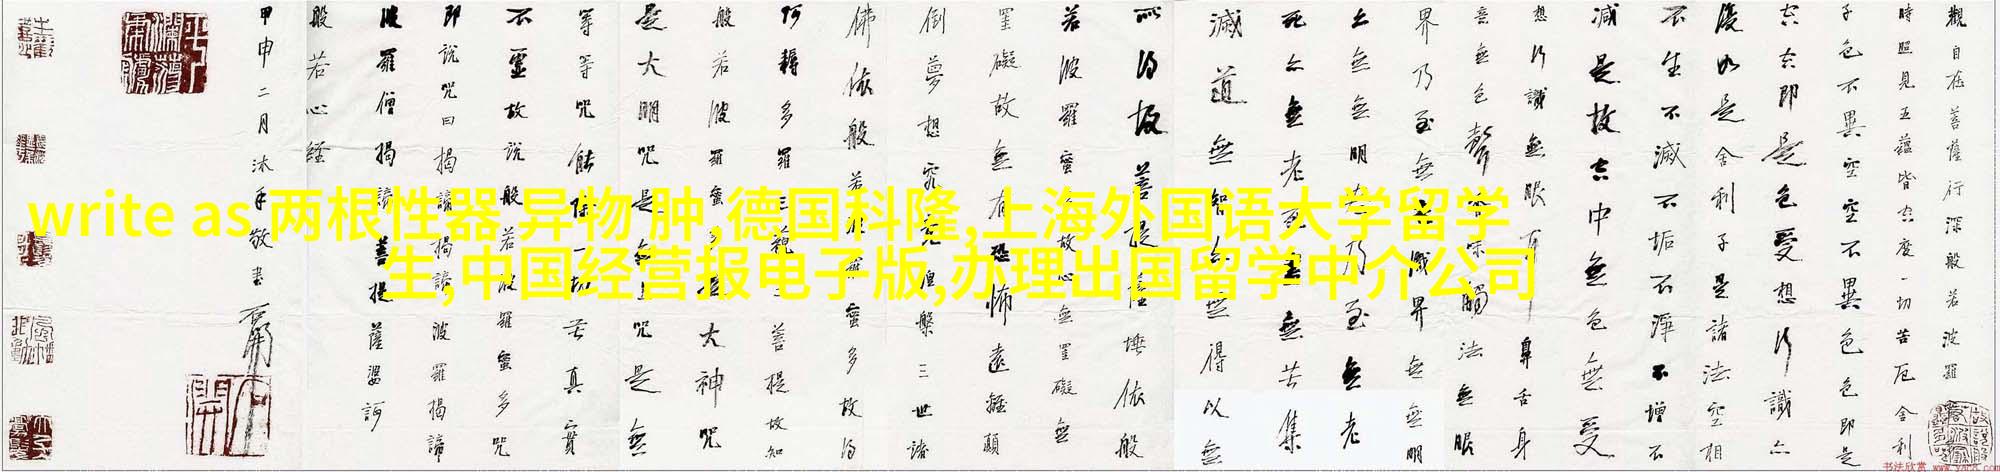 write as 两根性器 异物 肿,德国科隆,上海外国语大学留学
生,中国经营报电子版,办理出国留学中介公司
觀自在菩薩行深般若波羅
時照見五蘊皆空度一切苦厄舍利
子色不異空空不異色色即是
空空即是色受想行識亦
復如是舍利子是諸法空相
不生不滅不垢不淨不增不
減是故空中無色無受
想行識無眼耳鼻舌身
意無色聲香味觸法無眼
界乃至無意識界無無明
亦無無明盡乃至無老
死亦無老死盡無苦集
滅道無智亦無得以無
所得故菩提薩埵依般
若波羅蜜多故心無罣礙無
罣礙故無有恐怖遠離顛
倒夢想究竟涅槃三世諸
佛依般若波羅蜜多故得
阿耨多羅三藐三菩提故知
般若波羅蜜多是大神咒
是大明咒是無上咒是無
等等咒能除一切苦真實
不虛故說般若波羅蜜多咒
即說咒曰揭諦揭諦波羅揭諦
波羅僧揭諦菩提薩婆訶
般若心經
甲申二月沐手敬書
书法欣赏